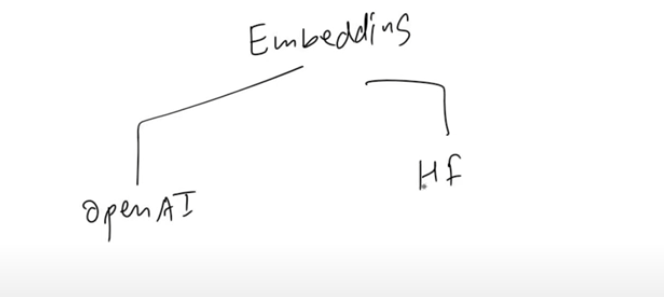 Embedding
OpenAI
Hf